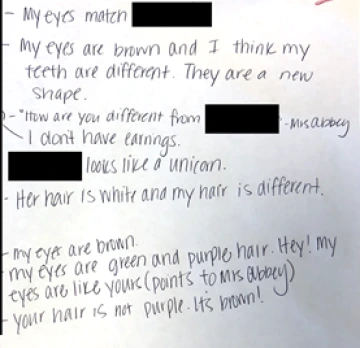 - My eyes match
- My eyes are brown and I think my
teeth are different. They are a new
shape.
- "How are you different from -Mrs Abbey
I don't have earrings.
looks like a unicorn.
- Her hair is white and my hair is different.
- my eyes are brown.
- my eyes are green and purple hair. Hey! My
eyes are like yours (points to Mrs Abbey)
- your hair is not purple. It's brown!